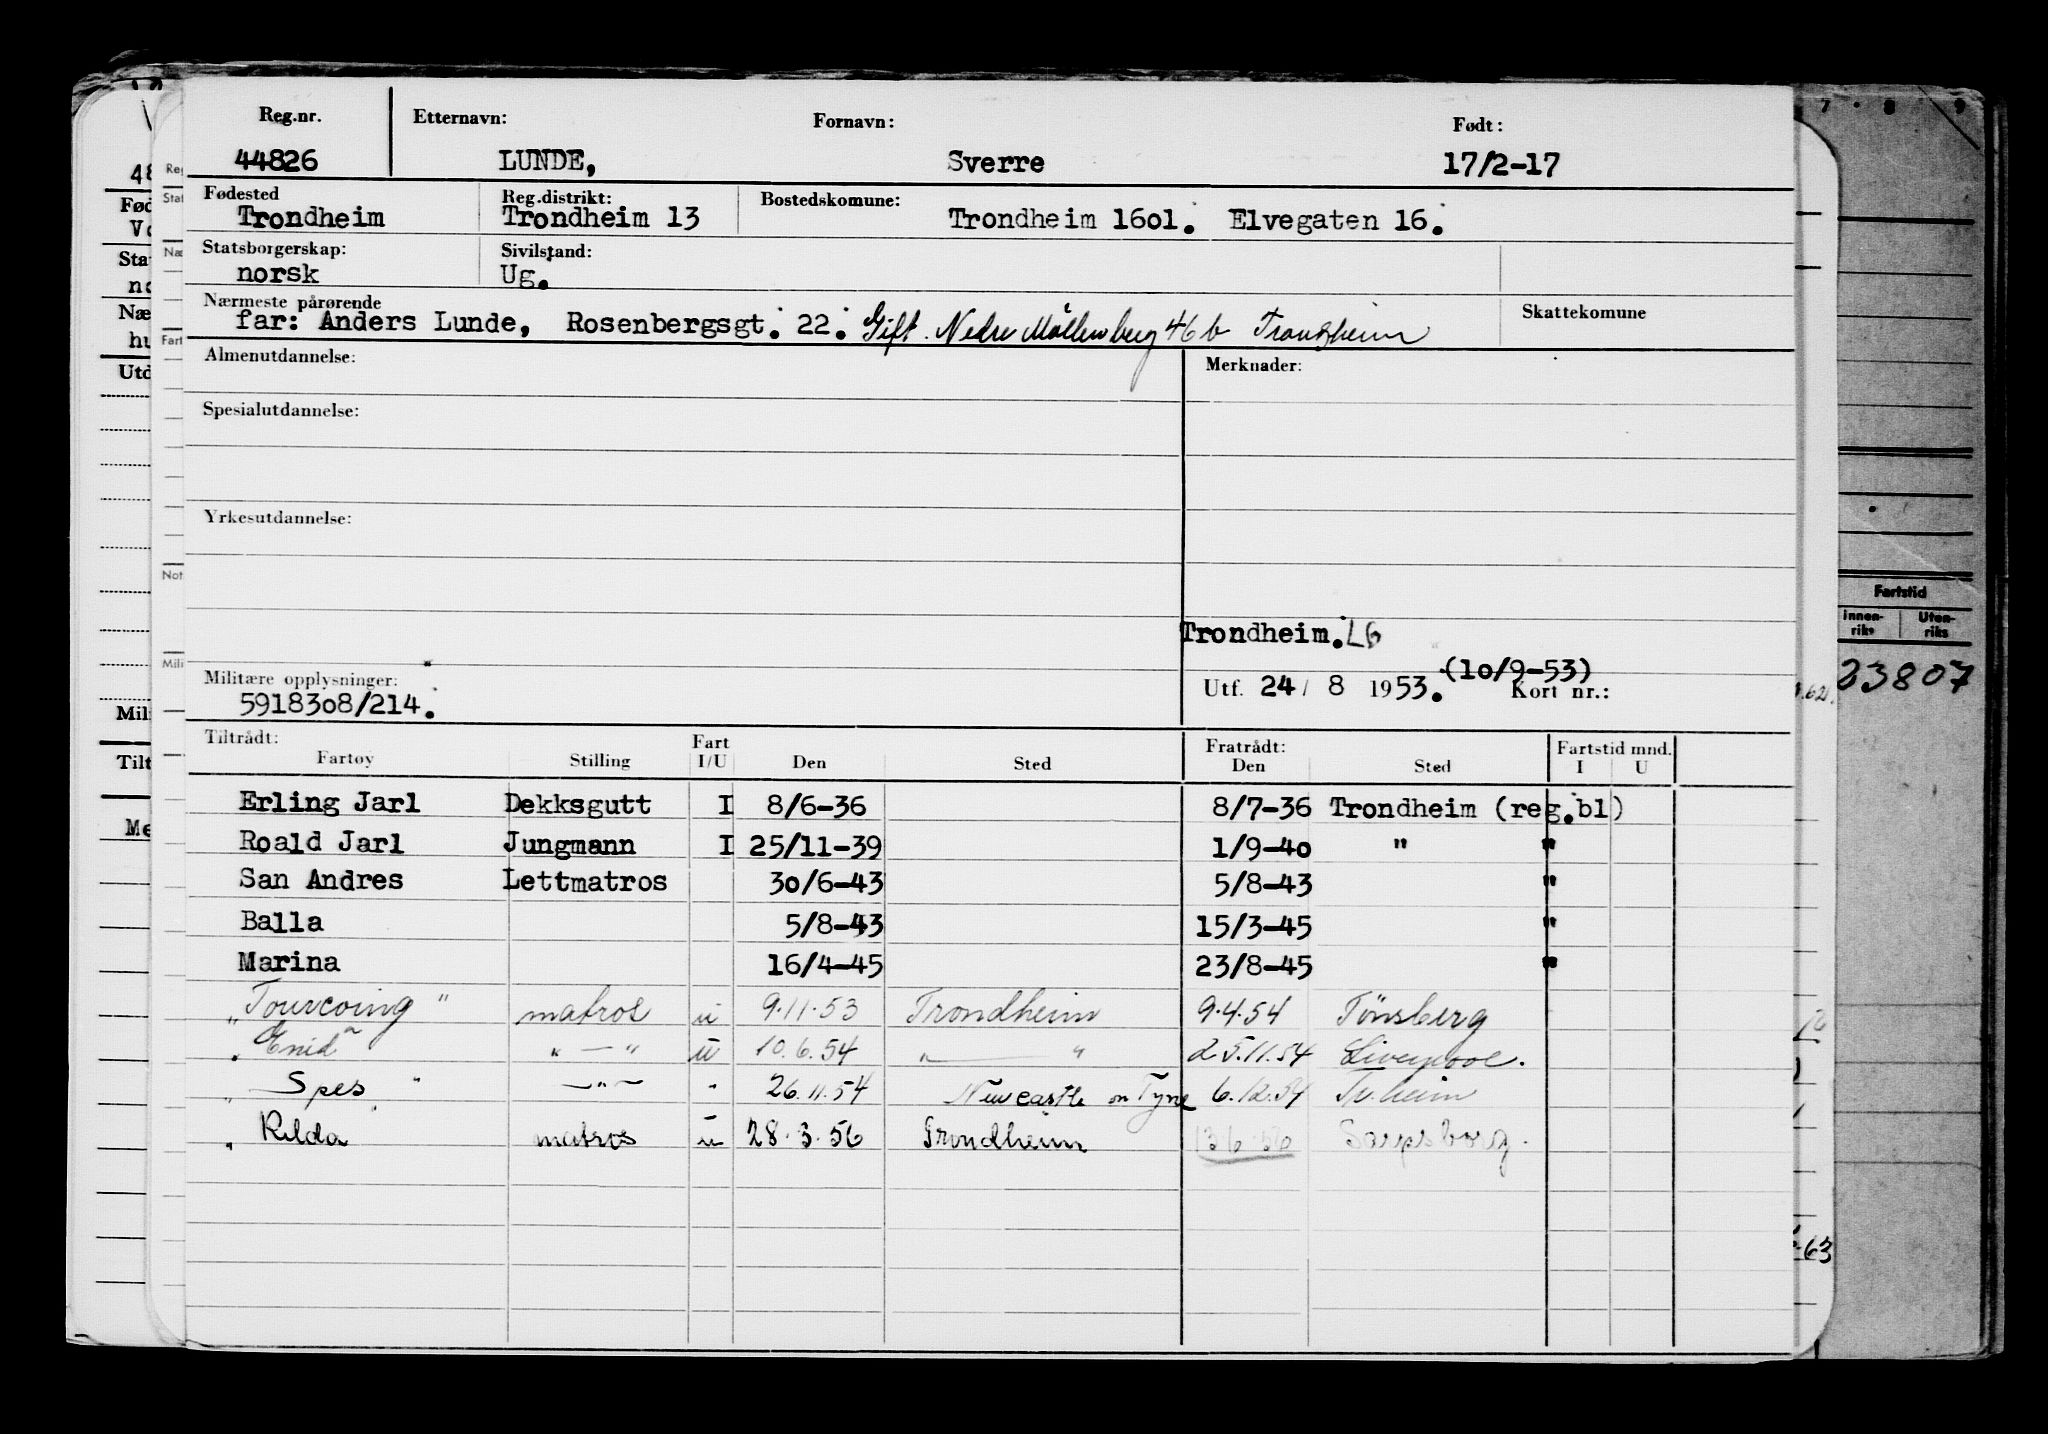 Reg.nr. Etternavn: Fornavn: Født:
44826 LUNDE, Sverre 17/2-17
Fødested Reg.distrikt: Bostedskomune:
Trondheim Trondheim 13 Trondheim 1601. Elvegaten 16.
Statsborgerskap: Sivilstand:
norsk Ug.
Nærmeste pårørende Skattekomune
far: Anders Lunde, Rosenbergsgt. 22. Gift. Nedre Möllenberg 46 b Trondheim
Almenutdannelse: Merknader:
Spesialutdannelse:
Yrkesutdannelse:
Trondheim. L6
Militære opplysninger: (10/9-53)
5918308/214. Utf. 24/ 8 1953. Kort nr.:
Tiltrådt: Fart Fratrådt: Fartstid mnd.
Fartøy Stilling I/U Den Sted Den Sted I U
Erling Jarl Dekksgutt I 8/6-36 8/7-36 Trondheim (reg.bl)
Roald Jarl Jungmann I 25/11-39 1/9-40 " "
San Andres Lettmatros 30/6-43 5/8-43 "
Balla 5/8-43 15/3-45 "
Marina 16/4-45 23/8-45 "
"Tourcoing" matros u 9.11.53 Trondheim 9.4.54 Tönsberg
"Enid" " — " u 10.6.54 " — " 25.11.54 Liverpool.
" Spes " — " — " 26.11.54 Newcastle on Tyne 6.12.54 Tr.heim
" Rilda matros u 28.3.56 Trondheim Sarpsborg.
Fartstid
Innen-riks Uten-riks
23807
7 . 8 9